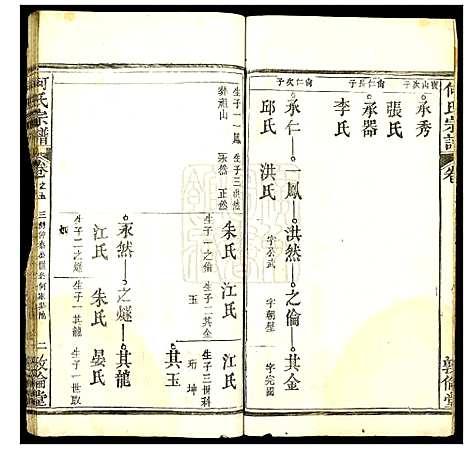 何氏宗譜
卷
敦倫堂
寶山次子
承秀
張氏
尚仁長子
承器
李氏
尚仁次子
承仁
一鳳
洪然
之倫
其金
邱氏
洪氏
字公武
字朝璧
字完國
生子一
一鳳
生子三
洪然
永然
正然
葬祖山
朱氏
江氏
江氏
生子一之倫
生子二其金
其玉
生子三世科
珩
坤
其玉
永然
之燧
其龍
江氏
朱氏
晏氏
生子二之燧
生子一其龍
生子一世取
何氏宗譜
卷之五
二
敦倫堂